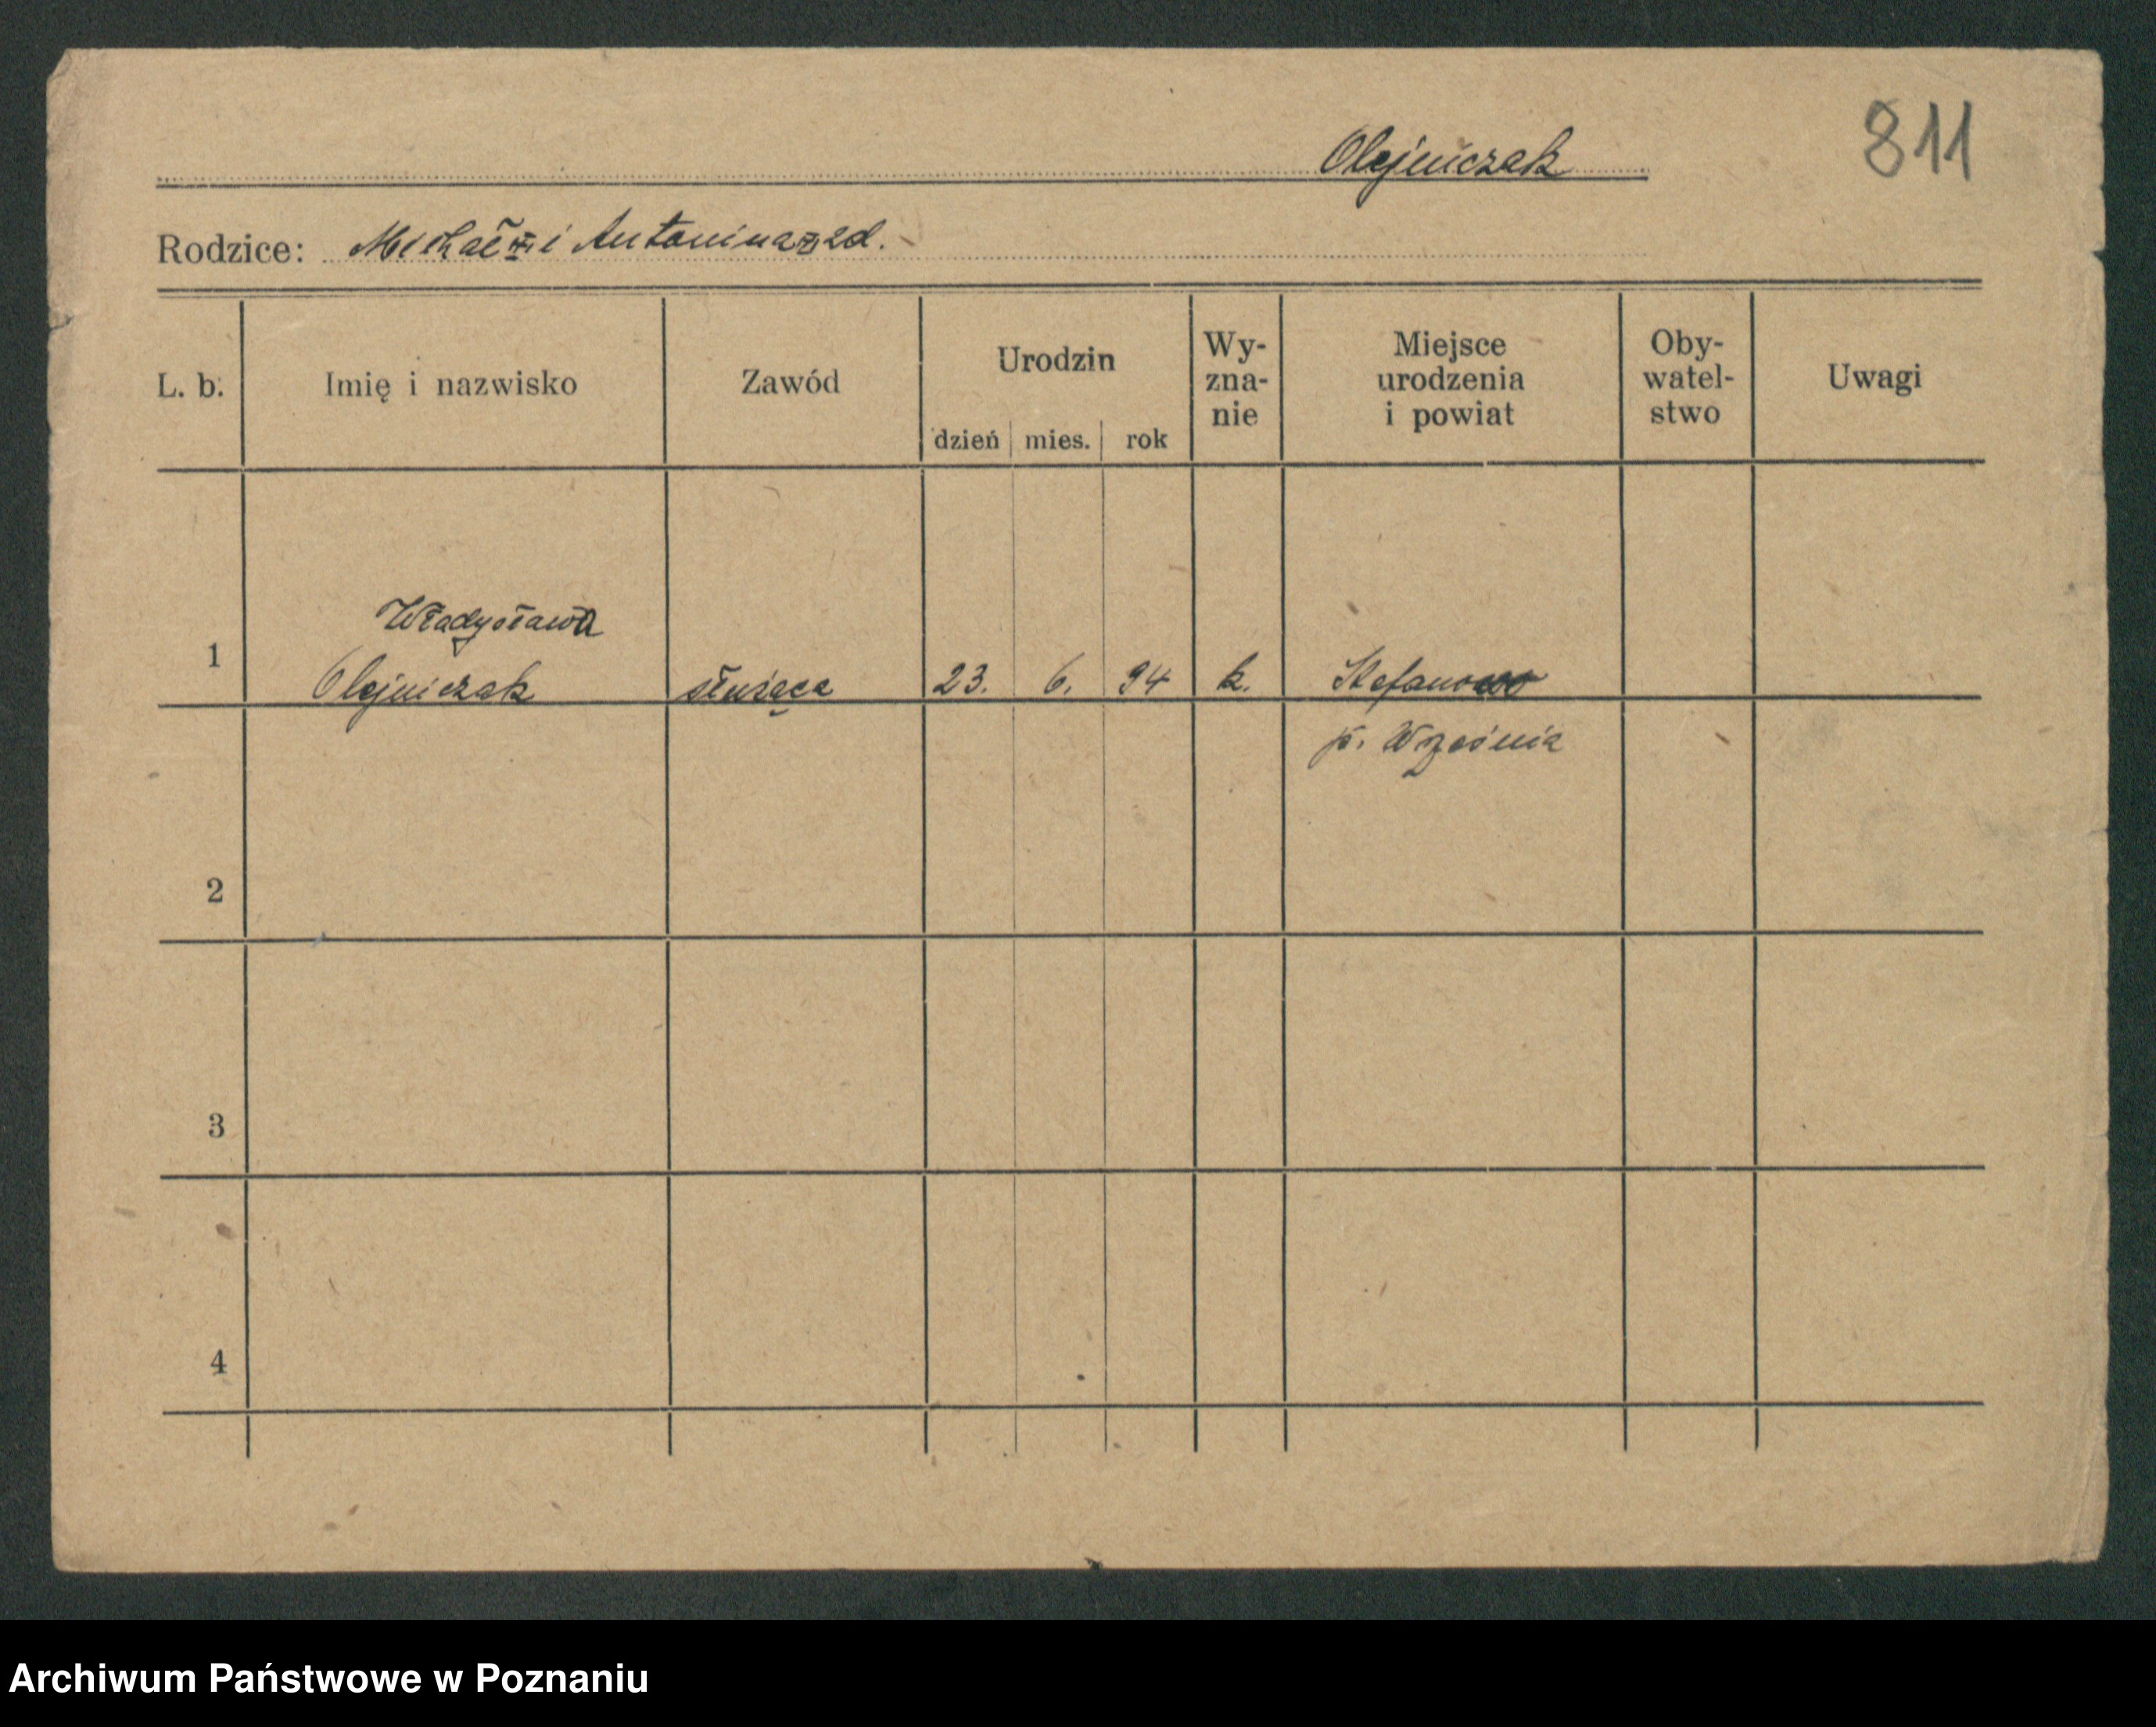 811
Olejniczak
Rodzice: Michał i Antonina zd.
L. b. Imię i nazwisko Zawód Urodzin dzień mies. rok Wy-zna-nie Miejsce urodzenia i powiat Oby-watel-stwo Uwagi
Władysława
1 Olejniczak służąca 23. 6. 94 k. Stefanowo
p. Września
2
3
4
Archiwum Państwowe w Poznaniu